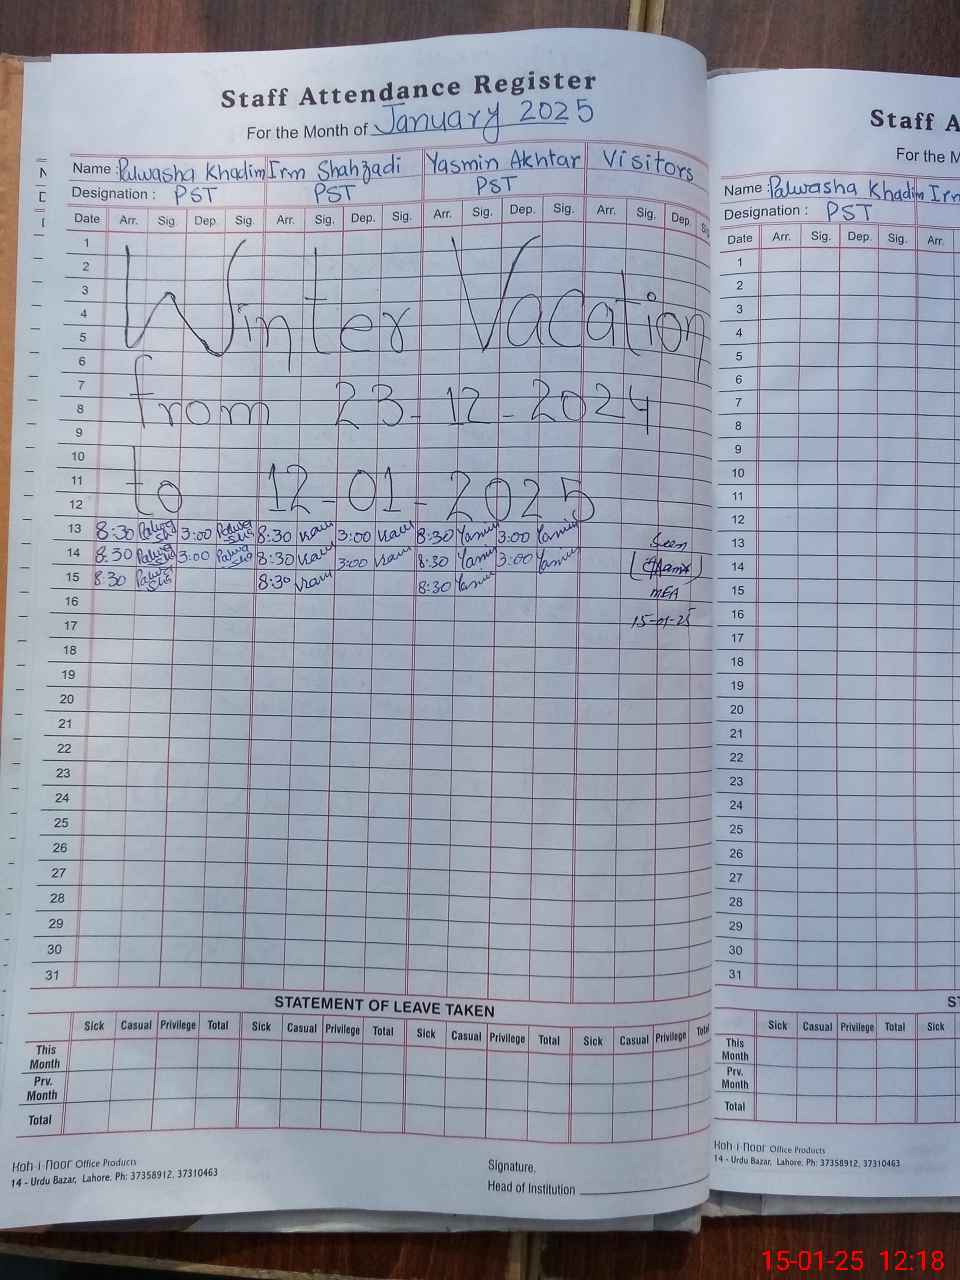 Staff Attendance Register
For the Month of January 2025
Name : Palwasha Khadim Irm Shahzadi Yasmin Akhtar Visitors
Designation : PST PST PST
Date Arr. Sig. Dep. Sig. Arr. Sig. Dep. Sig. Arr. Sig. Dep. Sig. Arr. Sig. Dep.
1
2
3
4
5
Winter Vacation
6
7
8
from 23-12-2024
9
10
11
12
to 12-01-2025
13 8:30 3:00 8:30 3:00 8:30 3:00 Seen
14 8:30 3:00 8:30 3:00 8:30 3:00
15 8:30 8:30 8:30 MEA
16
15-01-25
17
18
19
20
21
22
23
24
25
26
27
28
29
30
31
STATEMENT OF LEAVE TAKEN
Sick Casual Privilege Total Sick Casual Privilege Total Sick Casual Privilege Total Sick Casual Privilege Total
This Month
Prv. Month
Total
Koh-i-noor Office Products
14 - Urdu Bazar, Lahore. Ph: 37358912, 37310463
Signature,
Head of Institution
Staff A
For the M
Name : Palwasha Khadim Irm
Designation : PST
Date Arr. Sig. Dep. Sig. Arr.
1
2
3
4
5
6
7
8
9
10
11
12
13
14
15
16
17
18
19
20
21
22
23
24
25
26
27
28
29
30
31
ST
Sick Casual Privilege Total Sick
This Month
Prv. Month
Total
Koh-i-noor Office Products
14 - Urdu Bazar, Lahore. Ph: 37358912, 37310463
15-01-25 12:18